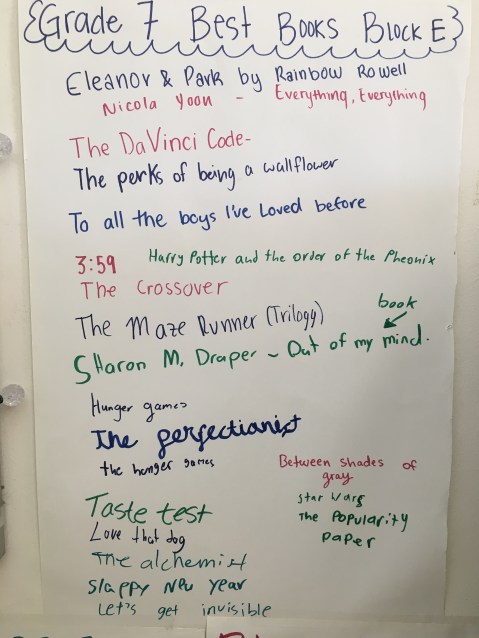 Grade 7 Best Books Block E
Eleanor & Park by Rainbow Rowell
Nicola Yoon - Everything, Everything
The DaVinci Code-
The perks of being a wallflower
To all the boys I've Loved before
3:59 Harry Potter and the order of the Pheonix
The Crossover
The Maze Runner (Trilogy)
book
Sharon M. Draper ~ Out of my mind.
Hunger games
The perfectionist
the hunger games
Between shades of
gray
Star Wars
The Popularity
Paper
Taste test
Love that dog
The alchemist
Slappy New Year
Let's get invisible